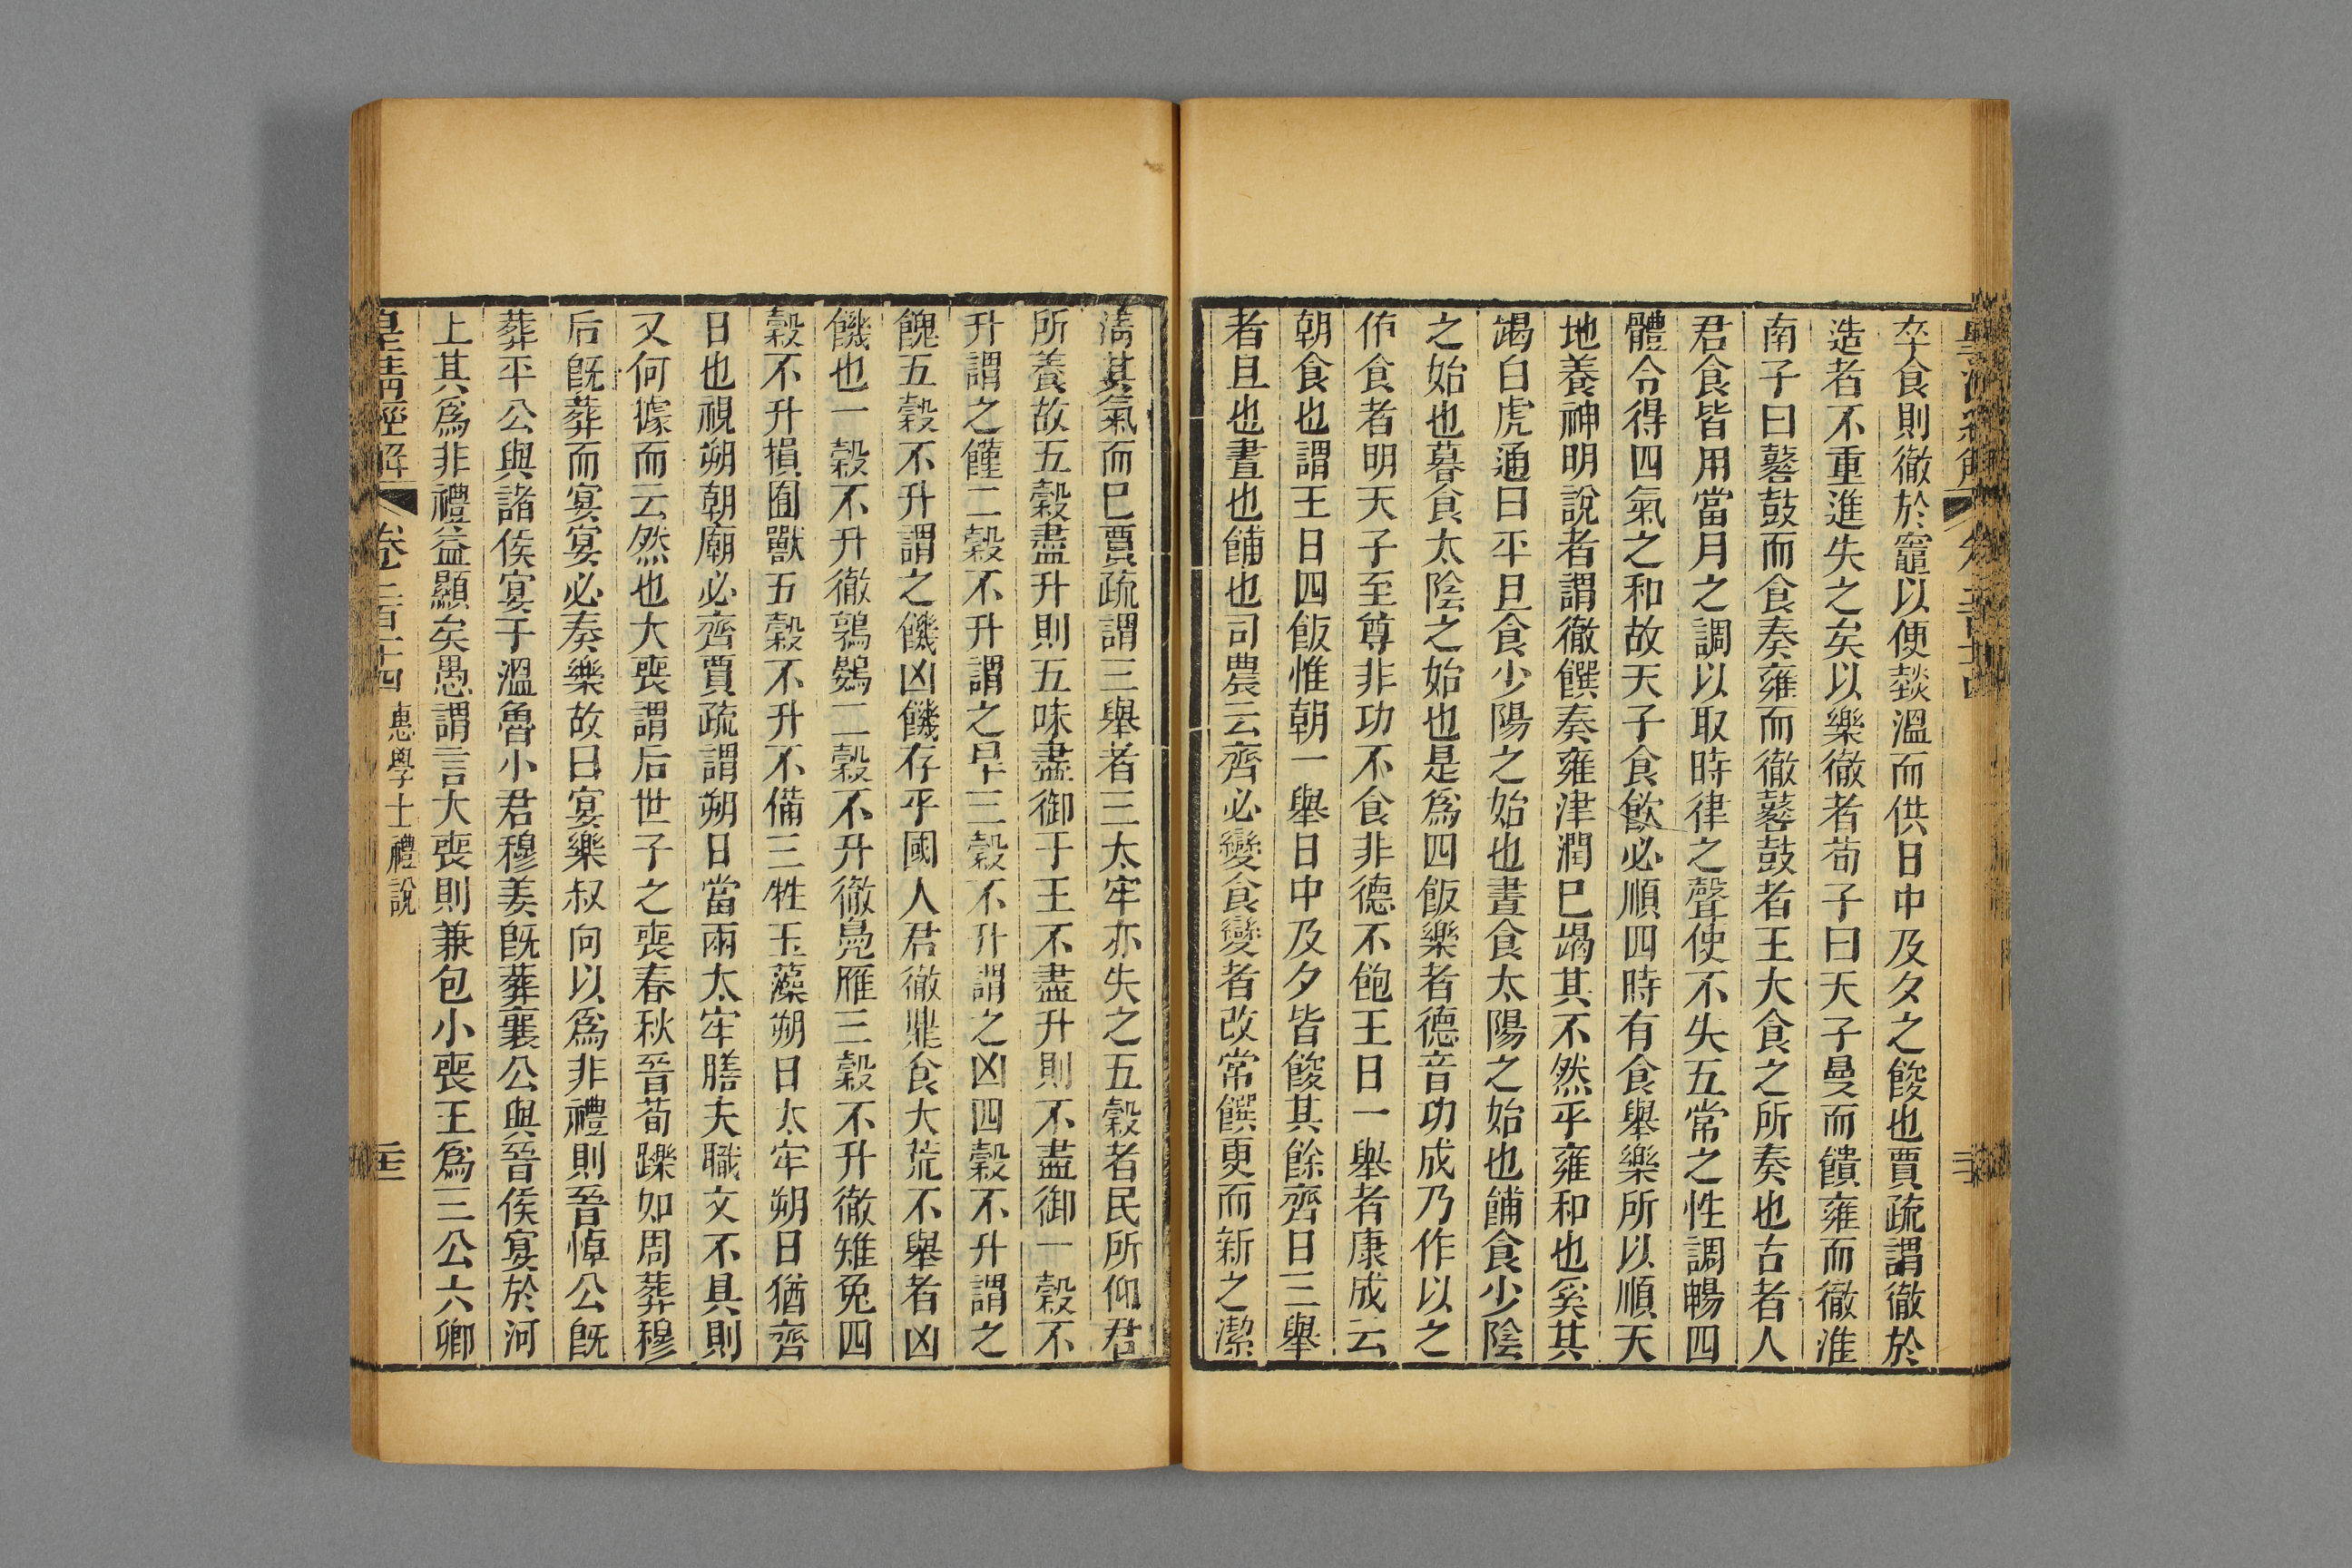 卒食則徹於竈以使燅溫而供日中及夕之餕也賈疏謂徹於
造者不重進失之矣以樂徹者荀子曰天子曼而饋雍而徹淮
南子曰鼛鼓而食奏雍而徹鼛鼓者王大食之所奏也古者人
君食皆用當月之調以取時律之聲使不失五常之性調暢四
體令得四氣之和故天子食飲必順四時有食舉樂所以順天
地養神明說者謂徹饌奏雍津潤已竭其不然乎雍和也奚其
竭白虎通曰平旦食少陽之始也晝食太陽之始也餔食少陰
之始也暮食太陰之始也是爲四飯樂者德音功成乃作以之
侑食者明天子至尊非功不食非德不飽王日一舉者康成云
朝食也謂王日四飯惟朝一舉日中及夕皆餕其餘齊日三舉
者旦也晝也餔也司農云齊必變食變者改常饌更而新之潔
淸其氣而已賈疏謂三舉者三太牢亦失之五穀者民所仰君
所養故五穀盡升則五味盡御于王不盡升則不盡御一穀不
升謂之饉二穀不升謂之旱三穀不升謂之凶四穀不升謂之
餽五穀不升謂之饑凶饑存乎國人君徹鼎食大荒不舉者凶
饑也一穀不升徹鶉鷃二穀不升徹鳧雁三穀不升徹雉兔四
穀不升損囿獸五穀不升不備三牲玉藻朔日太牢朔日猶齊
日也視朔朝廟必齊賈疏謂朔日當兩太牢膳夫職文不具則
又何據而云然也大喪謂后世子之喪春秋晉荀躒如周葬穆
后旣葬而宴宴必奏樂故曰宴樂叔向以爲非禮則晉悼公旣
葬平公與諸侯宴于溫魯小君穆姜旣葬襄公與晉侯宴於河
上其爲非禮益顯矣愚謂言大喪則兼包小喪王爲三公六卿
皇清經解 卷二百十四 惠學士禮說